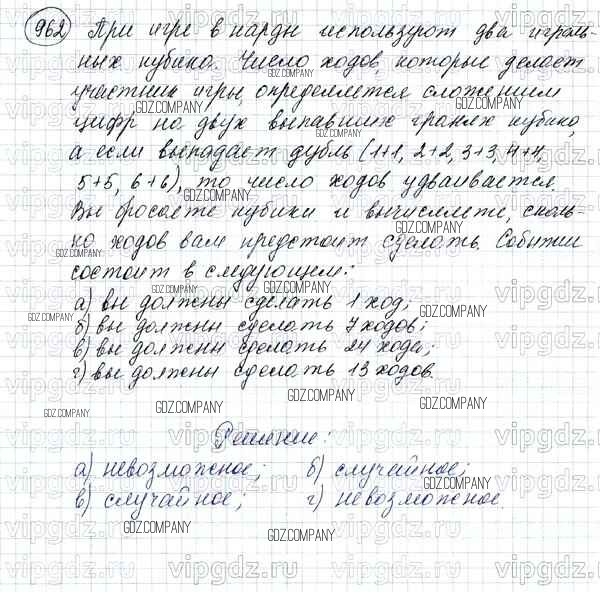 962 При игре в нарды используют два играль-
ных кубика. Число ходов, которые делает
участник игры, определяется сложением
цифр на двух выпавших гранях кубика,
а если выпадает дубль (1+1, 2+2, 3+3, 4+4,
5+5, 6+6), то число ходов удваивается.
Вы бросаете кубики и вычисляете, сколь-
ко ходов вам предстоит сделать. События
состоит в следующем:
а) вы должны сделать 1 ход;
б) вы должны сделать 7 ходов;
в) вы должны сделать 24 хода;
г) вы должны сделать 13 ходов.
Решение:
а) невозможное; б) случайное;
в) случайное; г) невозможное
GDZ.COMPANY
vipgdz.ru